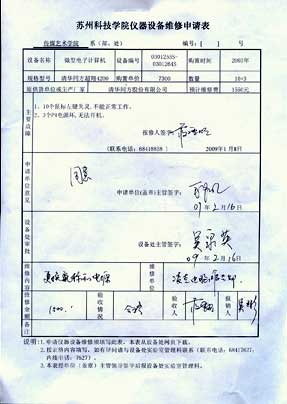 苏州科技学院仪器设备维修申请表
传媒艺术学院 系（部、处） 编号：[ ] 号
设备名称 微型电子计算机 设备编号 0301253S-0301264S 购置时间 2003年
规格型号 清华同方超翔4200 购置单价 7300 数量 10+3
原供货单位或生产厂家 清华同方股份有限公司 预计维修费 1550元
主要故障
1、10个鼠标左键失灵，不能正常工作。
2、3个P4电源坏，无法开机。
报修人签字：
（联系电话：68418838 ） 2009年1月8日
申请单位意见
同意
申请单位(盖章)主管签字：
09年2月16日
设备处审批
设备处主管签字：
09年2月16日
维修内容
维修单位
维修金额
1500.
验收情况
合格
验收人
报销人
备注
说明：1.申请仪器设备维修须填写此表。本表从设备处网页下载。
2.按正楷内容填写。如有异同请与设备处实验室管理科联系（联系电话：68417627；
内线电话：7627）。
3.本表经单位（盖章）主管领导签字后报设备处实验室管理科。